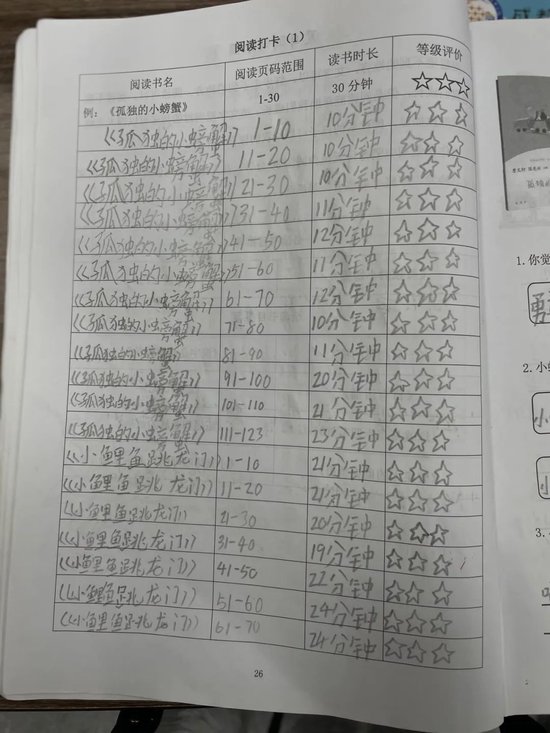 阅读打卡（1）
阅读书名 阅读页码范围 读书时长 等级评价
例：《孤独的小螃蟹》 1-30 30 分钟 ☆☆☆
《孤独的小螃蟹》 1-10 10分钟 ☆☆☆
《孤独的小螃蟹》 11-20 10分钟 ☆☆☆
《孤独的小螃蟹》 21-30 10分钟 ☆☆☆
《孤独的小螃蟹》 31-40 11分钟 ☆☆☆
《孤独的小螃蟹》 41-50 12分钟 ☆☆☆
《孤独的小螃蟹》 51-60 11分钟 ☆☆☆
《孤独的小螃蟹》 61-70 12分钟 ☆☆☆
《孤独的小螃蟹》 71-80 10分钟 ☆☆☆
《孤独的小螃蟹》 81-90 11分钟 ☆☆☆
《孤独的小螃蟹》 91-100 20分钟 ☆☆☆
《孤独的小螃蟹》 101-110 21分钟 ☆☆☆
《孤独的小螃蟹》 111-123 23分钟 ☆☆☆
《小鲤鱼跳龙门》 1-10 21分钟 ☆☆☆
《小鲤鱼跳龙门》 11-20 21分钟 ☆☆☆
《小鲤鱼跳龙门》 21-30 20分钟 ☆☆☆
《小鲤鱼跳龙门》 31-40 19分钟 ☆☆☆
《小鲤鱼跳龙门》 41-50 22分钟 ☆☆☆
《小鲤鱼跳龙门》 51-60 24分钟 ☆☆☆
《小鲤鱼跳龙门》 61-70 24分钟 ☆☆☆
26
1. 你觉
2. 小
3.